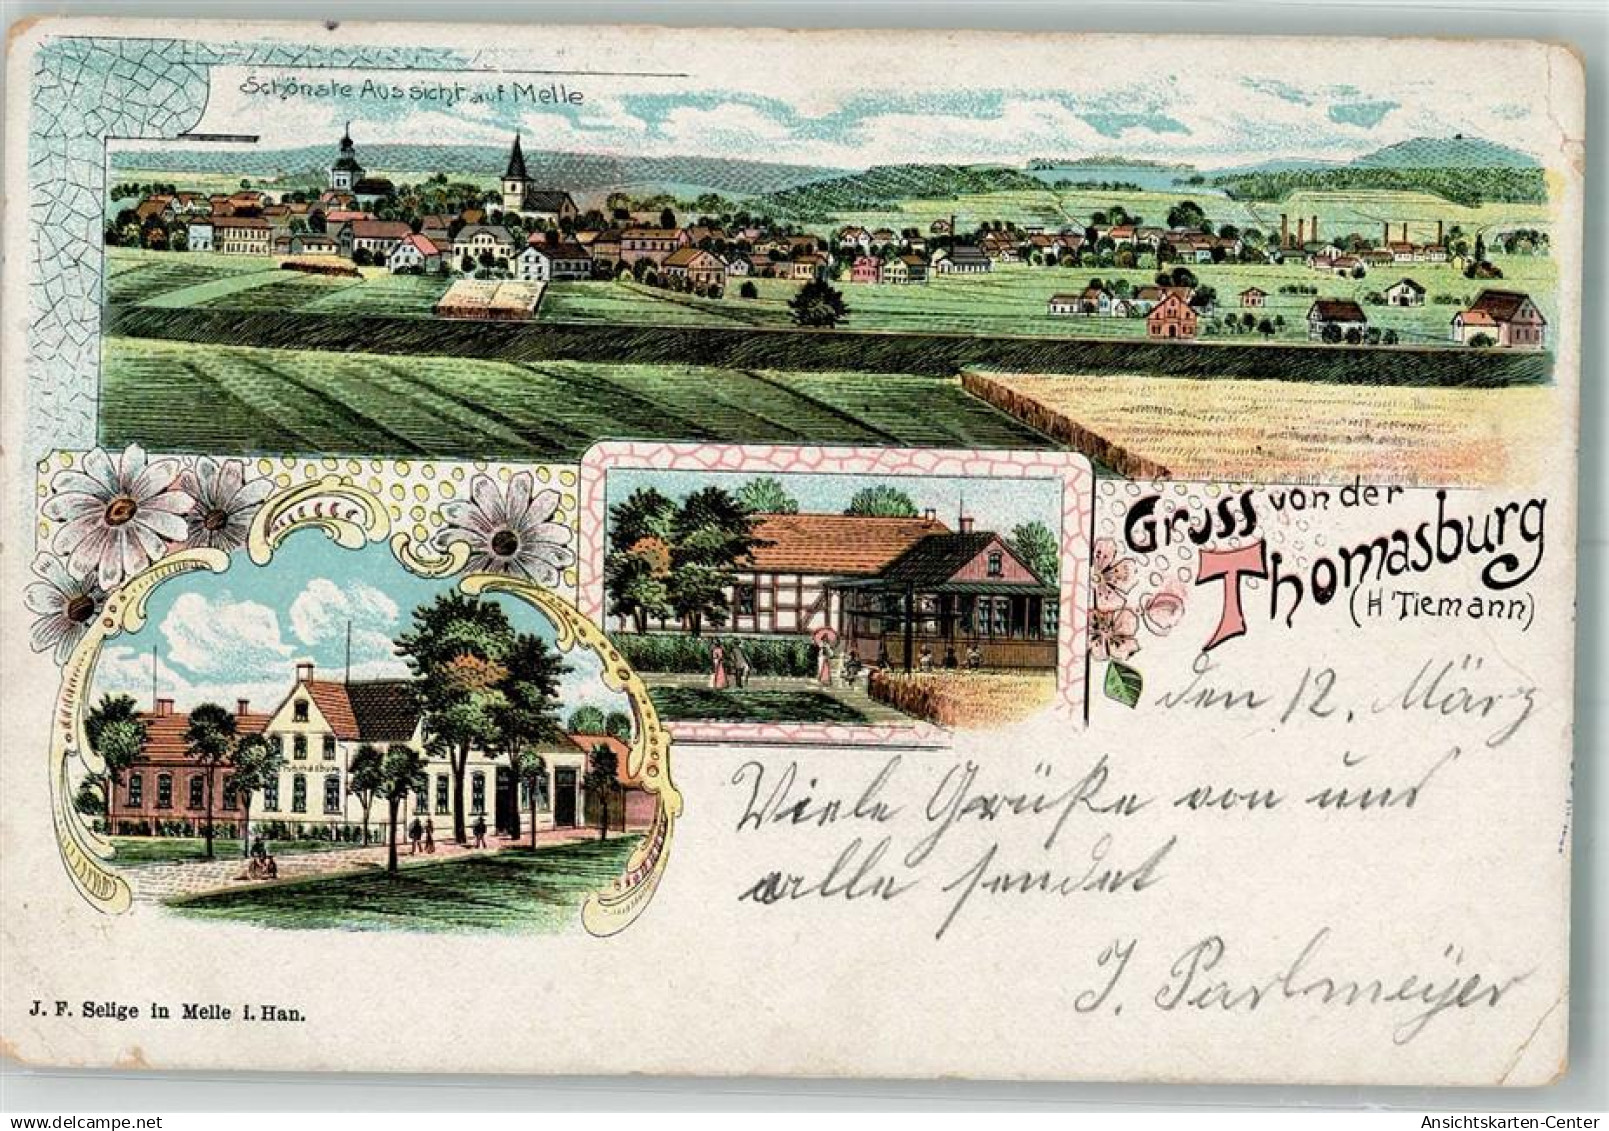 Schönste Aussicht auf Melle
Gruss von der
Thomasburg
(H Tiemann)
den 12. März
Viele Grüße von uns
alle sendet
J. Parlmeÿer
Thomasburg
J. F. Selige in Melle i. Han.
Ansichtskarten-Center